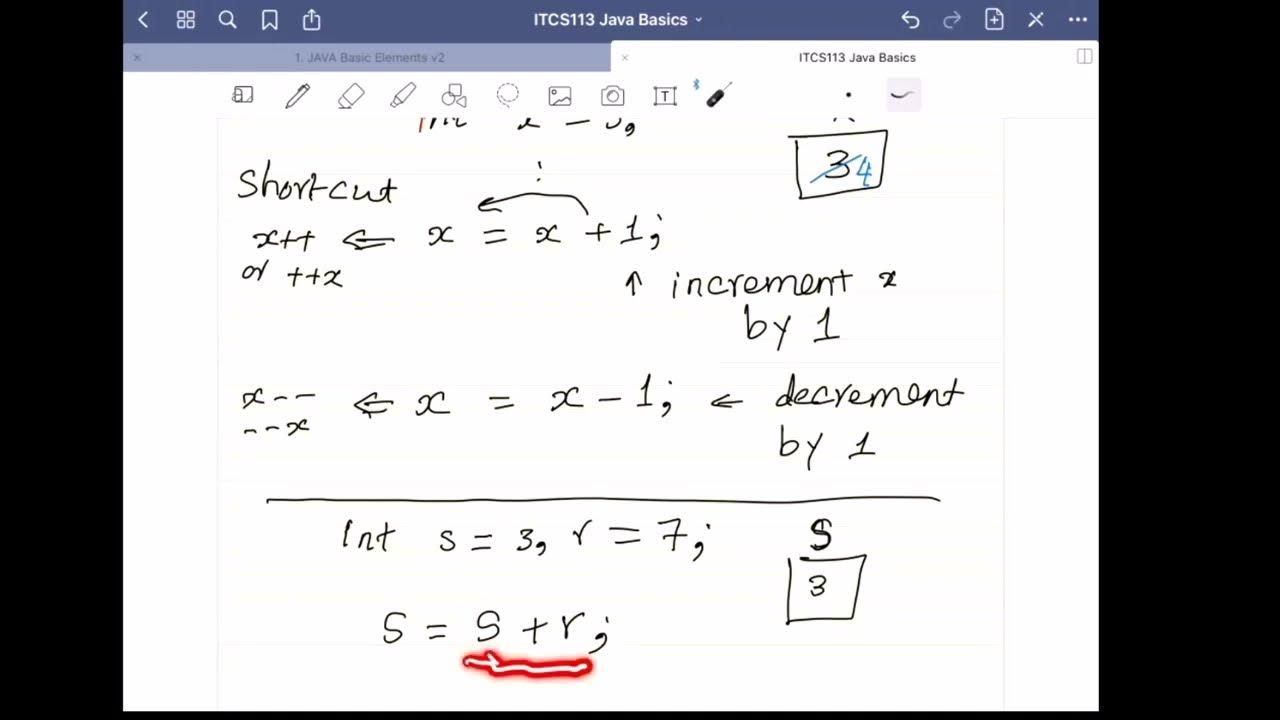 ITCS113 Java Basics
1. JAVA Basic Elements v2
ITCS113 Java Basics
T
34
Shortcut
x++ ⇐ x = x + 1;
or ++x
↑ increment x
by 1
x-- ⇐ x = x - 1; ← decrement
--x
by 1
Int s = 3, r = 7; S
3
S = S + r;